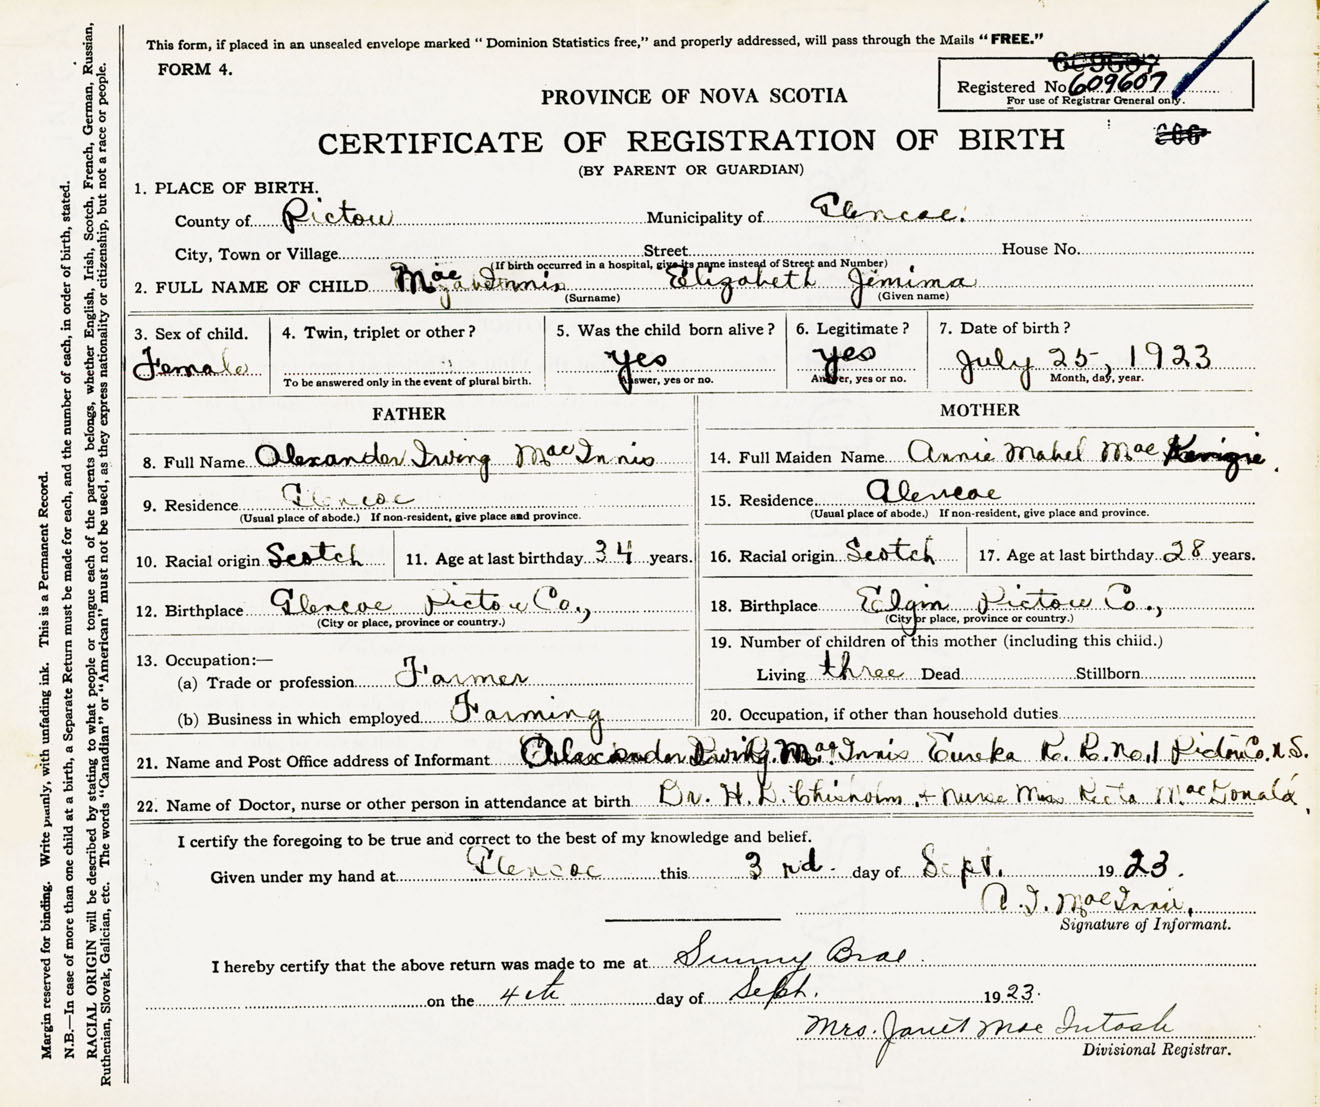 This form, if placed in an unsealed envelope marked “ Dominion Statistics free,” and properly addressed, will pass through the Mails “FREE.”
FORM 4.
609607
Registered No. 609607
For use of Registrar General only.
PROVINCE OF NOVA SCOTIA
CERTIFICATE OF REGISTRATION OF BIRTH
(BY PARENT OR GUARDIAN)
1. PLACE OF BIRTH.
County of Pictou Municipality of Glencoe.
City, Town or Village Street House No.
(If birth occurred in a hospital, give its name instead of Street and Number)
2. FULL NAME OF CHILD Mac Innis Elizabeth Jemima
(Surname) (Given name)
3. Sex of child. 4. Twin, triplet or other? 5. Was the child born alive? 6. Legitimate? 7. Date of birth?
Female yes yes July 25, 1923
To be answered only in the event of plural birth. Answer, yes or no. Answer, yes or no. Month, day, year.
FATHER MOTHER
8. Full Name Alexander Irving MacInnis 14. Full Maiden Name Annie Mabel Mac
9. Residence Glencoe 15. Residence Glencoe
(Usual place of abode.) If non-resident, give place and province. (Usual place of abode.) If non-resident, give place and province.
10. Racial origin Scotch 11. Age at last birthday 34 years. 16. Racial origin Scotch 17. Age at last birthday 28 years.
12. Birthplace Glencoe Pictou Co., 18. Birthplace Elgin Pictou Co.,
(City or place, province or country.) (City or place, province or country.)
13. Occupation:— 19. Number of children of this mother (including this child.)
(a) Trade or profession Farmer Living three Dead Stillborn
(b) Business in which employed Farming 20. Occupation, if other than household duties
21. Name and Post Office address of Informant Alexander Irving MacInnis Eureka R. R. No. 1 Pictou Co. N.S.
22. Name of Doctor, nurse or other person in attendance at birth Dr. H. D. Chisholm, + Nurse Miss MacDonald,
I certify the foregoing to be true and correct to the best of my knowledge and belief.
Given under my hand at Glencoe this 3 rd. day of Sept. 1923.
A. I. MacInnis,
Signature of Informant.
I hereby certify that the above return was made to me at Sunny Brae.
on the 4th day of Sept. 1923.
Mrs. Janet MacIntosh
Divisional Registrar.
Margin reserved for binding. Write plainly, with unfading ink. This is a Permanent Record.
N.B.—In case of more than one child at a birth, a Separate Return must be made for each, and the number of each, in order of birth, stated.
RACIAL ORIGIN will be described by stating to what people or tongue each of the parents belongs, whether English, Irish, Scotch, French, German, Russian,
Ruthenian, Slovak, Galician, etc. The words “Canadian” or “American” must not be used, as they express nationality or citizenship, but not a race or people.